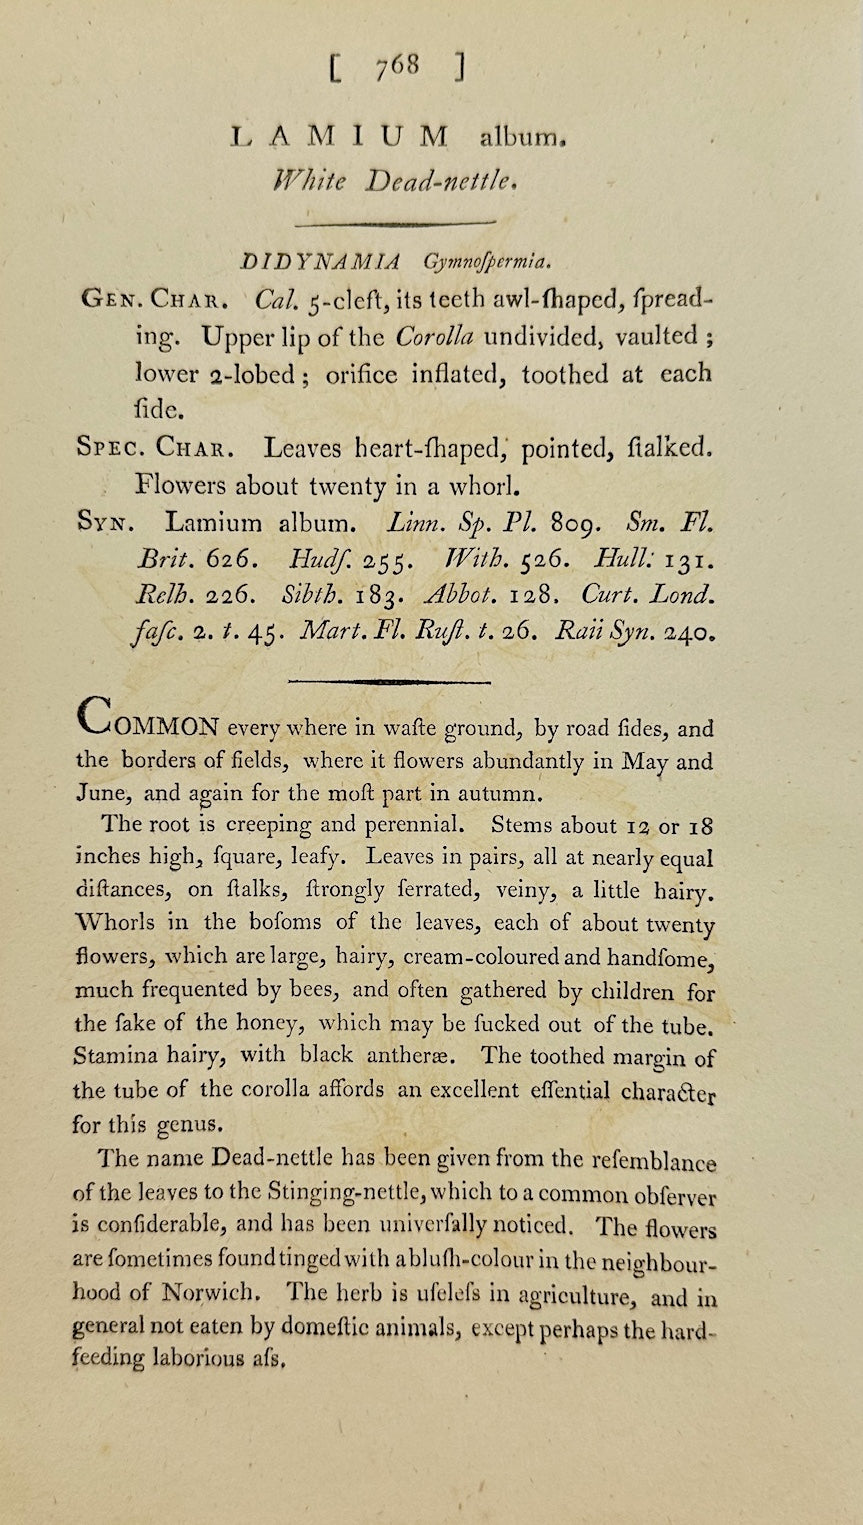 [ 768 ]
LAMIUM album.
White Dead-nettle.
DIDYNAMIA Gymnoſpermia.
GEN. CHAR. Cal. 5-cleft, its teeth awl-ſhaped, ſpread-
ing. Upper lip of the Corolla undivided, vaulted ;
lower 2-lobed ; orifice inflated, toothed at each
ſide.
SPEC. CHAR. Leaves heart-ſhaped, pointed, ſtalked.
Flowers about twenty in a whorl.
SYN. Lamium album. Linn. Sp. Pl. 809. Sm. Fl.
Brit. 626. Hudſ. 255. With. 526. Hull. 131.
Relh. 226. Sibth. 183. Abbot. 128. Curt. Lond.
faſc. 2. t. 45. Mart. Fl. Ruſt. t. 26. Raii Syn. 240.
COMMON every where in waſte ground, by road ſides, and
the borders of fields, where it flowers abundantly in May and
June, and again for the moſt part in autumn.
The root is creeping and perennial. Stems about 12 or 18
inches high, ſquare, leafy. Leaves in pairs, all at nearly equal
diſtances, on ſtalks, ſtrongly ſerrated, veiny, a little hairy.
Whorls in the boſoms of the leaves, each of about twenty
flowers, which are large, hairy, cream-coloured and handſome,
much frequented by bees, and often gathered by children for
the ſake of the honey, which may be ſucked out of the tube.
Stamina hairy, with black antheræ. The toothed margin of
the tube of the corolla affords an excellent eſſential character
for this genus.
The name Dead-nettle has been given from the reſemblance
of the leaves to the Stinging-nettle, which to a common obſerver
is conſiderable, and has been univerſally noticed. The flowers
are ſometimes found tinged with a bluſh-colour in the neighbour-
hood of Norwich. The herb is uſeleſs in agriculture, and in
general not eaten by domeſtic animals, except perhaps the hard-
feeding laborious aſs.